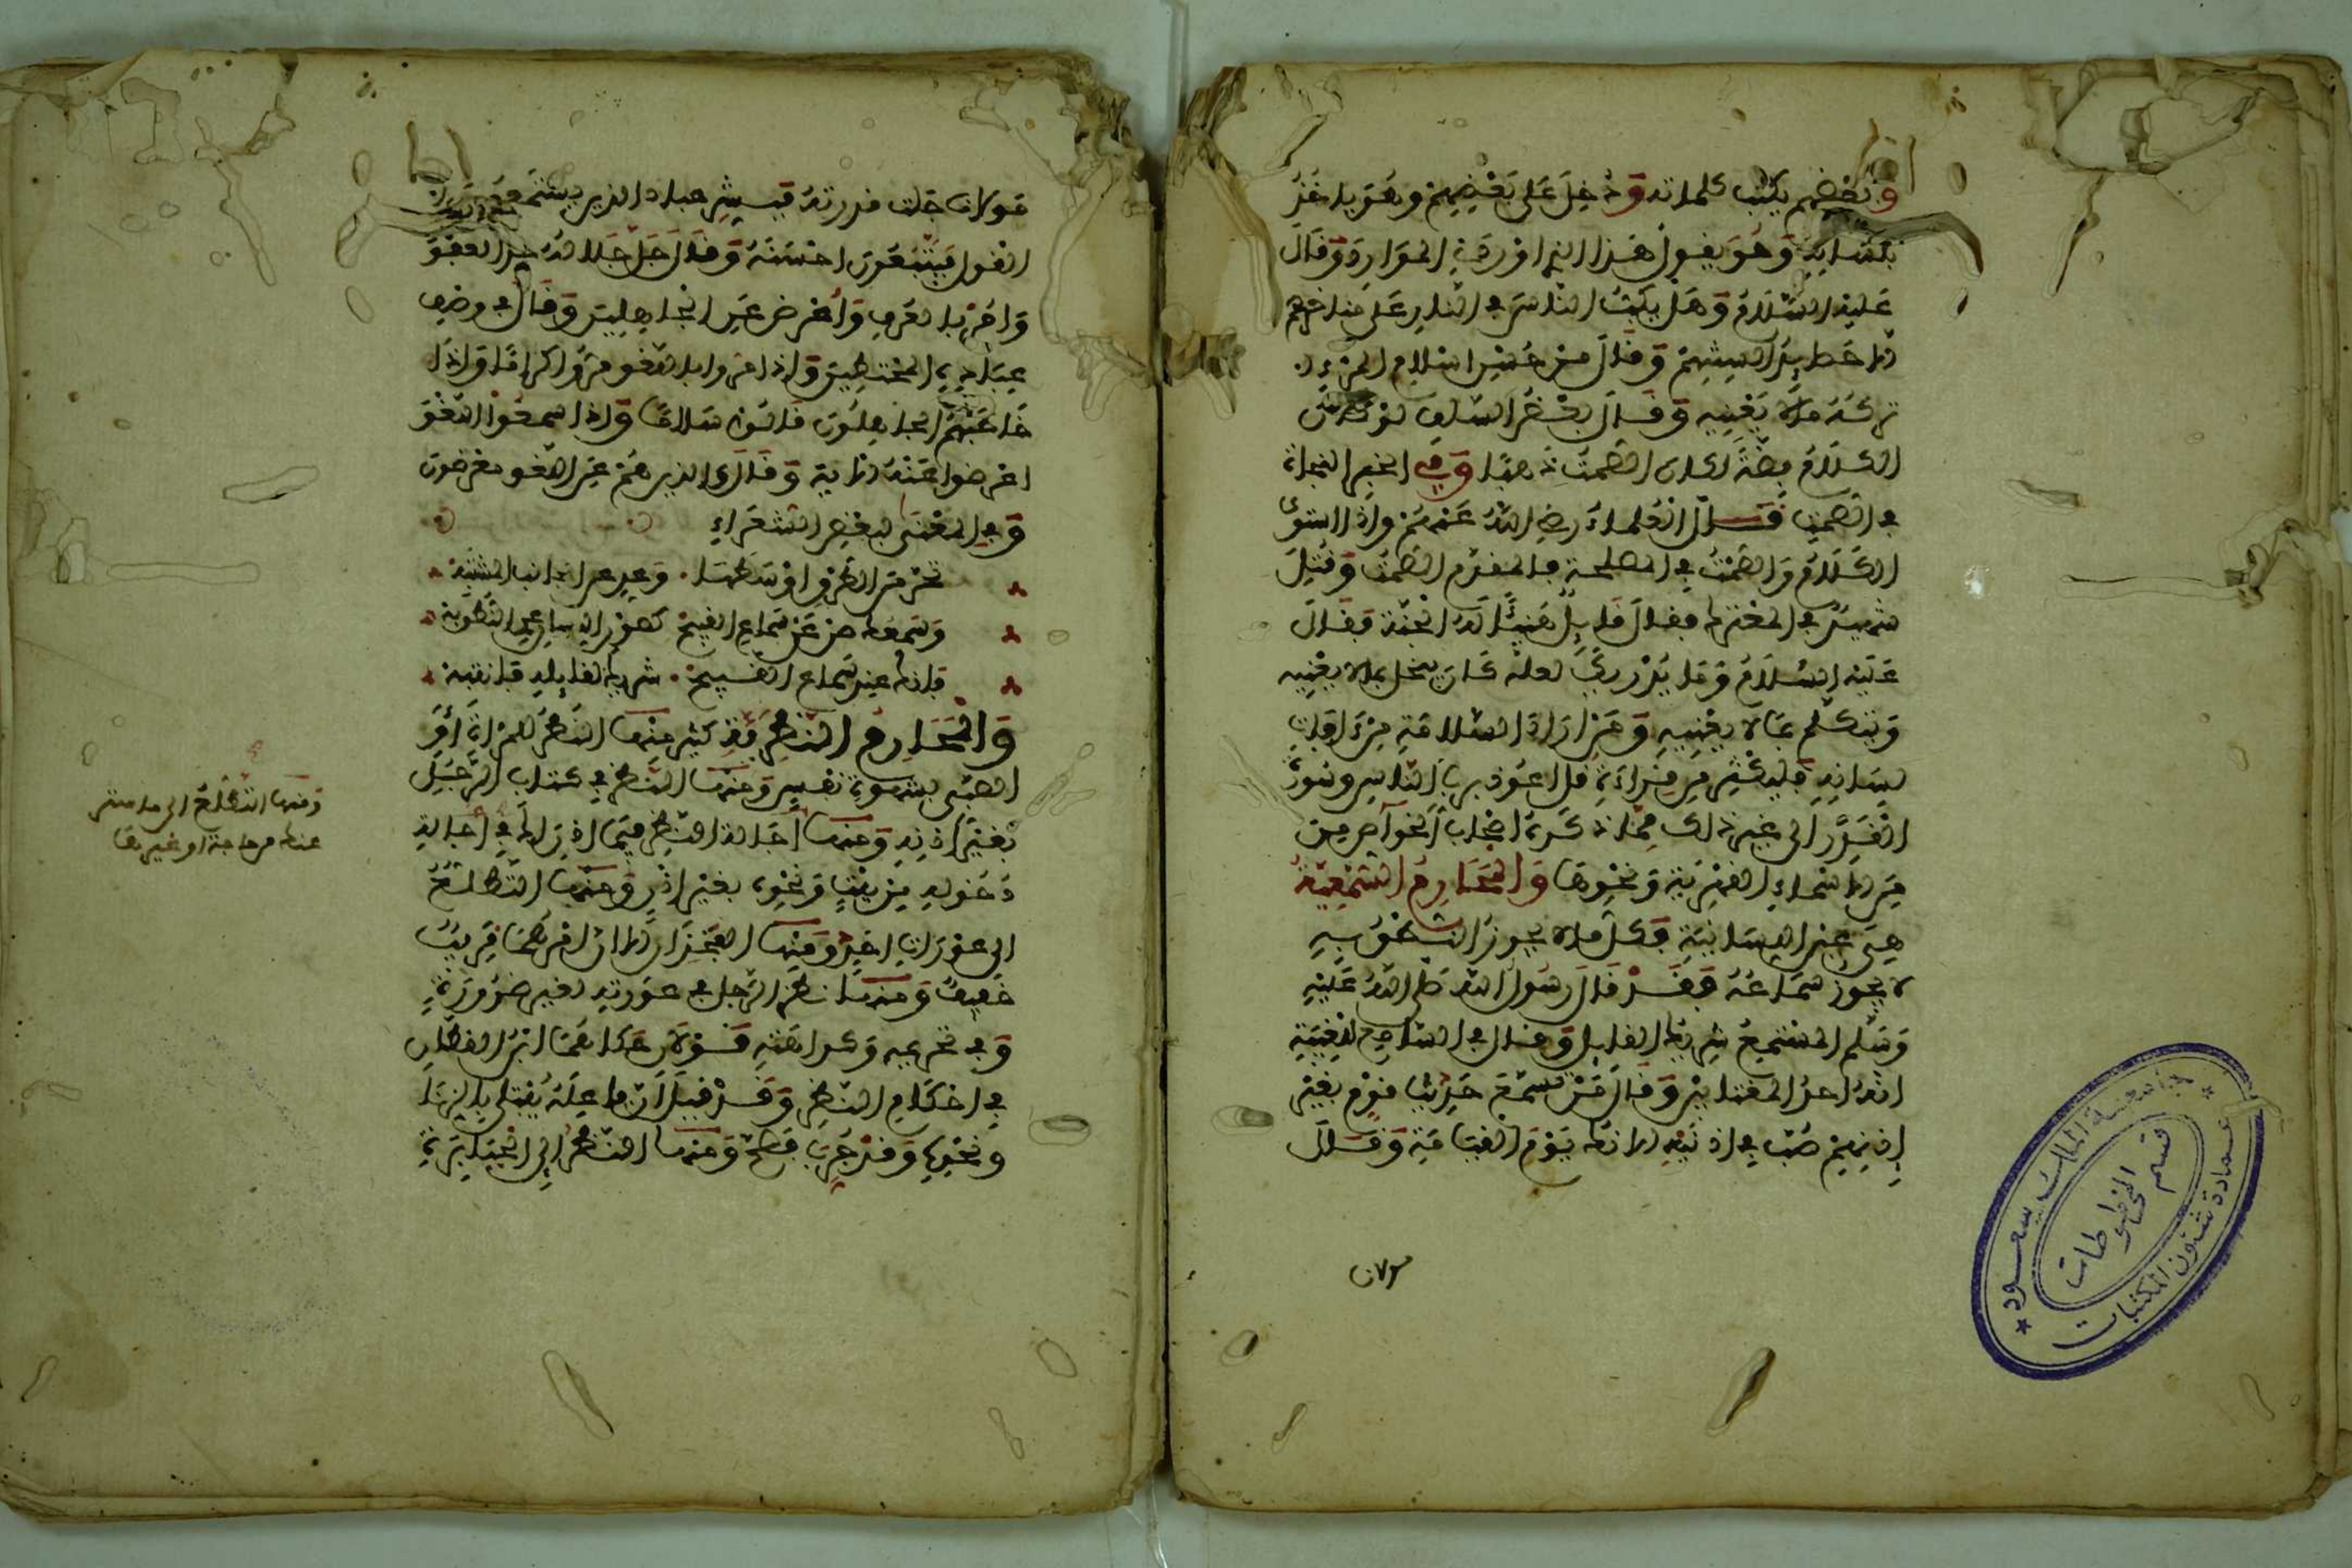 وبعضهم يكتب كلماته ودخل على بعضهم وهو ياخذ
بلسانه وهو يقول هذا الذي اوردني الموارد وقال
عليه السلام وهل يكب الناس في النار على مناخرهم
الا حصايد السنتهم وقال من حسن اسلام المرء
تركه ما لا يعنيه وقال بعض السلف لو كان
الكلام فضة لكان الصمت ذهبا وفي الخبر النجاة
في الصمت قال العلماء رضي الله عنهم واذا استوى
الكلام والصمت في المصلحة فالمقدم الصمت وقتل
شهيد في المعترك فقال قايل هنيئا له الجنة فقال
عليه السلام وما يدريك لعله كان يبخل بما لا يعنيه
ويتكلم بما لا يعنيه ومن اراد السلامة من افات
لسانه فليكثر من قراءة قل اعوذ برب الناس وسورة
القدر الى غير ذلك مما ذكره اصحاب الخواص من
من الاسماء العزيزية ونحوها والمحارم السمعية
هي عين اللسانية فكل ما لا يجوز النطق به
لا يجوز سماعه فقد قال رسول الله صلى الله عليه
وسلم المستمع شريك القايل وقال في السامع للغيبة
انه احد المغتابين وقال من يسمع حديث قوم بغير
اذنهم صب في اذنيه الانك يوم القيامة وقال
مولانا
مولانا جلت قدرته فبشر عباد الذين يستمعون
القول فيتبعون احسنه وقال جل جلاله خذ العفو
وامر بالعرف واعرض عن الجاهلين وقال في وصف
عباده المختصين واذا مروا باللغو مروا كراما واذا
خاطبهم الجاهلون قالوا سلاما واذا سمعوا اللغو
اعرضوا عنه الاية وقال والذين هم عن اللغو معرضون
وفي المعنى لبعض الشعراء
تحر من الطرق اوسطها وعد عن الجانب المشتبه
وسمعك صن عن سماع القبيح كصون اللسان عن النطق به
فانك عند سماع القبيح شريك لقايله فانتبه
والمحارم النظرية كثير منها النظر للمراة او
الصبي بشهوة نفس ومنها النظر في كتاب الرجل
بغير اذنه ومنها اجالة النظر فيما اذن لك في
دخوله من بيت ونحوه بغير اذن ومنها التطلع
الى عورات اخذ ومنها الفخذان الا ان امرهما قريب
خفيف ومنها نظر الرجل في عورته لغير ضرورة
وفي تحريمه وكراهته قولان حكاهما ابن القطان
في احكام النظر وقد قيل ان فاعله يبتلى بالزنا
ونحوه وقد جرب فصح ومنها النظر الى الجبابرة
ومنها التطلع الى ما ستر
عنك من حاجة او غيرها
جامعة الملك سعود
قسم المخطوطات
عمادة شئون المكتبات